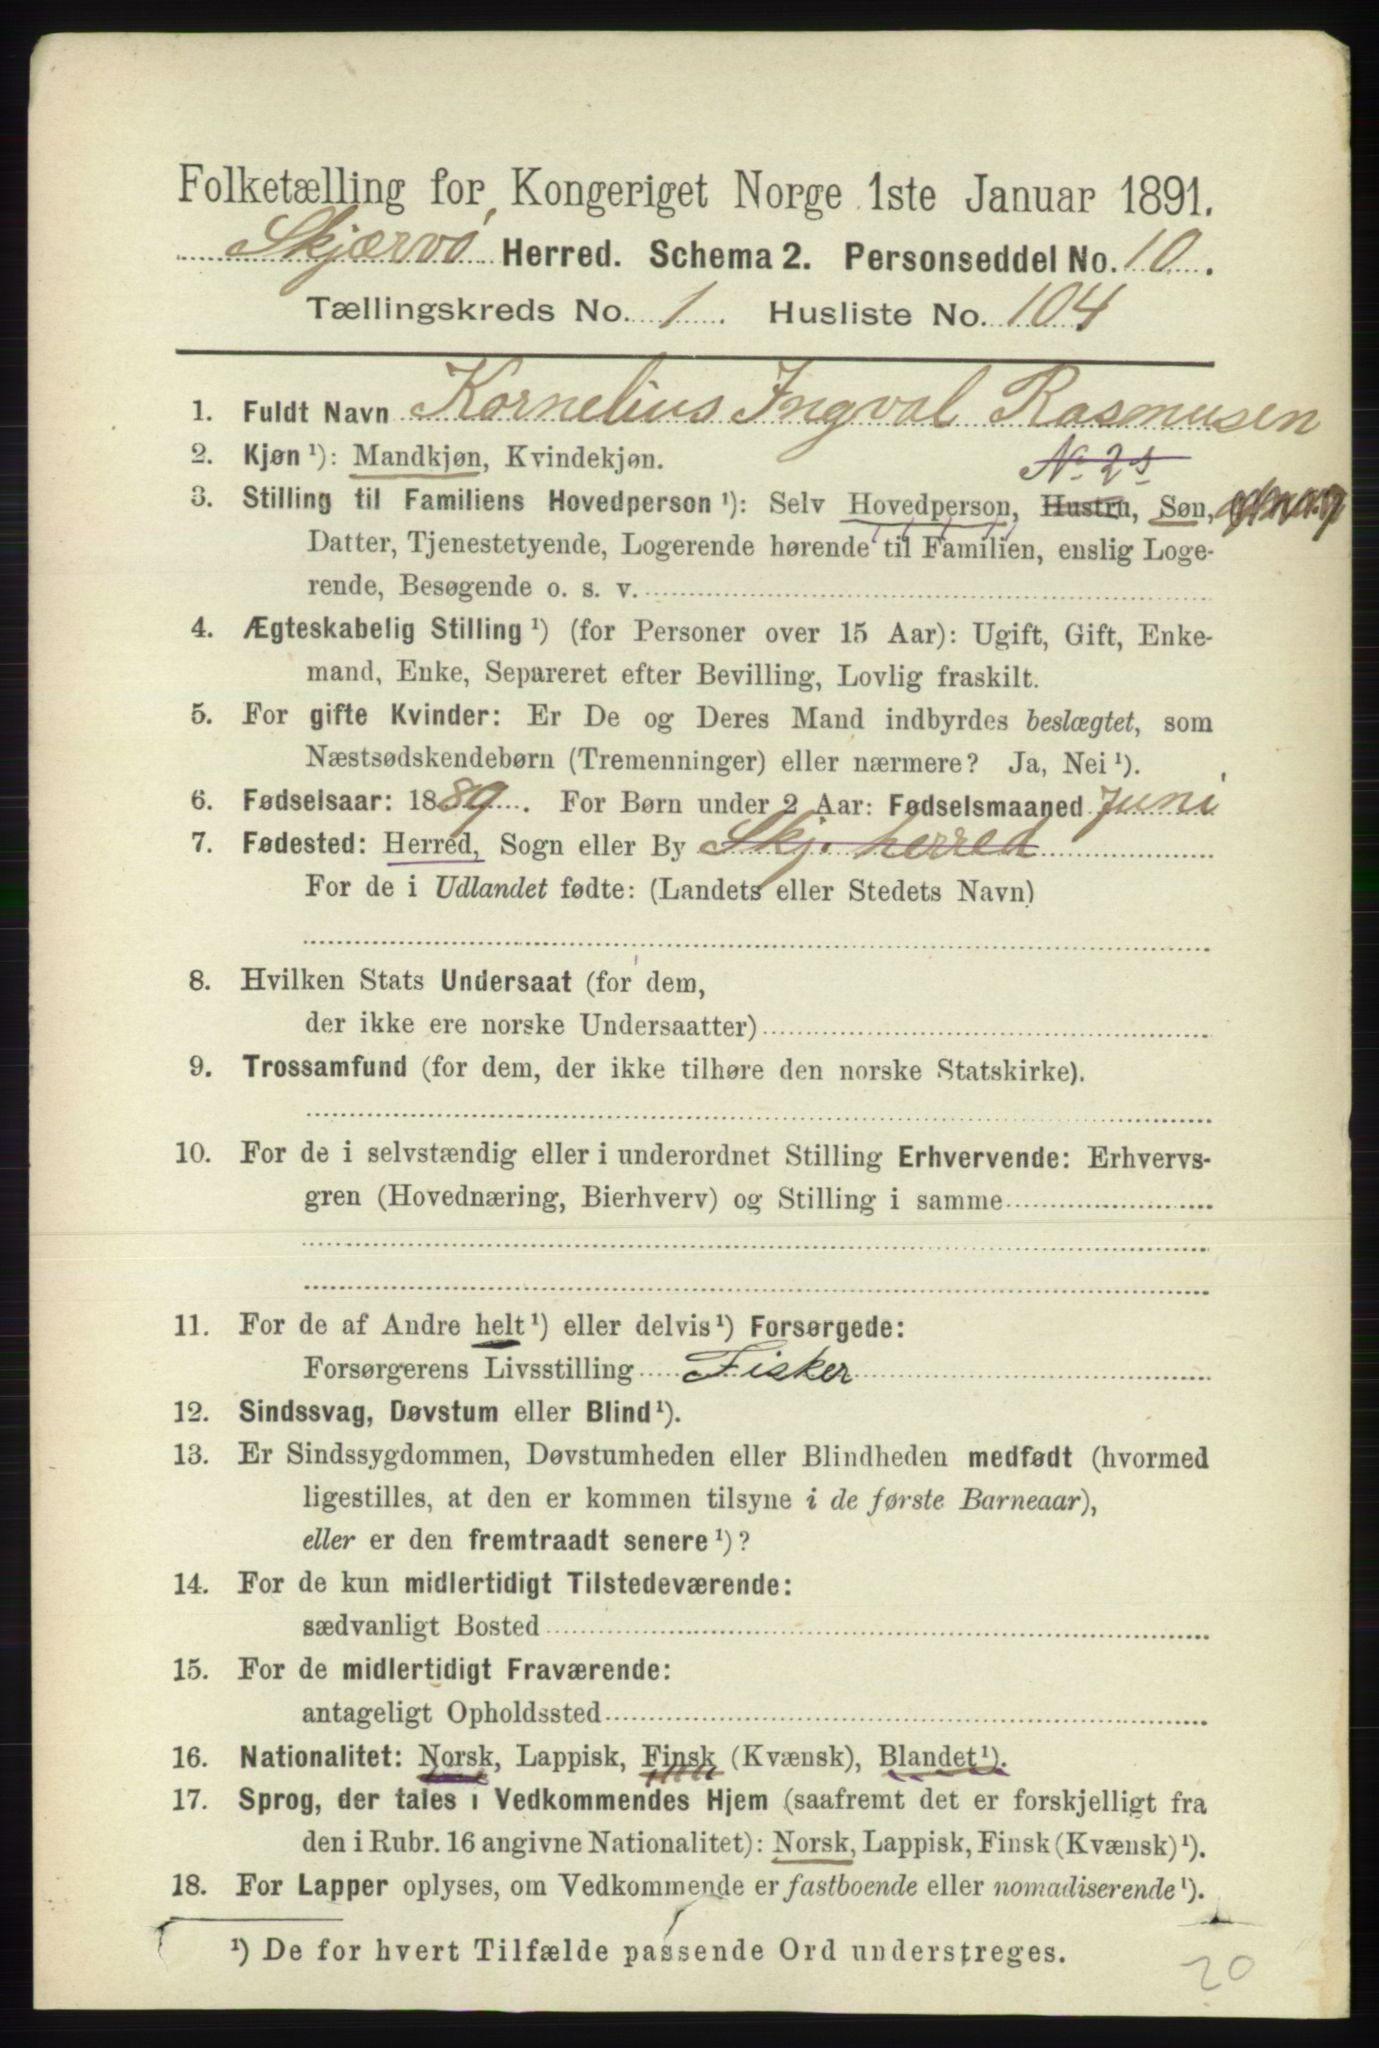 Folketælling for Kongeriget Norge 1ste Januar 1891.
Skjærvö Herred. Schema 2. Personseddel No. 10.
Tællingskreds No. 1. Husliste No. 104
1. Fuldt Navn Kornelius Ingval Rasmusen
2. Kjøn ¹): Mandkjøn, Kvindekjøn.
No 2s
3. Stilling til Familiens Hovedperson ¹): Selv Hovedperson, Hustru, Søn,
Datter, Tjenestetyende, Logerende hørende til Familien, enslig Loge-
rende, Besøgende o. s. v.
4. Ægteskabelig Stilling ¹) (for Personer over 15 Aar): Ugift, Gift, Enke-
mand, Enke, Separeret efter Bevilling, Lovlig fraskilt.
5. For gifte Kvinder: Er De og Deres Mand indbyrdes beslægtet, som
Næstsødskendebørn (Tremenninger) eller nærmere? Ja, Nei ¹).
6. Fødselsaar: 1889. For Børn under 2 Aar: Fødselsmaaned Juni
7. Fødested: Herred, Sogn eller By Skj. herred
For de i Udlandet fødte: (Landets eller Stedets Navn)
8. Hvilken Stats Undersaat (for dem,
der ikke ere norske Undersaatter)
9. Trossamfund (for dem, der ikke tilhøre den norske Statskirke).
10. For de i selvstændig eller i underordnet Stilling Erhvervende: Erhvervs-
gren (Hovednæring, Bierhverv) og Stilling i samme
11. For de af Andre helt ¹) eller delvis ¹) Forsørgede:
Forsørgerens Livsstilling Fisker
12. Sindssvag, Døvstum eller Blind ¹).
13. Er Sindssygdommen, Døvstumheden eller Blindheden medfødt (hvormed
ligestilles, at den er kommen tilsyne i de første Barneaar),
eller er den fremtraadt senere ¹)?
14. For de kun midlertidigt Tilstedeværende:
sædvanligt Bosted
15. For de midlertidigt Fraværende:
antageligt Opholdssted
16. Nationalitet: Norsk, Lappisk, Finsk (Kvænsk), Blandet ¹).
17. Sprog, der tales i Vedkommendes Hjem (saafremt det er forskjelligt fra
den i Rubr. 16 angivne Nationalitet): Norsk, Lappisk, Finsk (Kvænsk) ¹).
18. For Lapper oplyses, om Vedkommende er fastboende eller nomadiserende ¹).
¹) De for hvert Tilfælde passende Ord understreges.
20